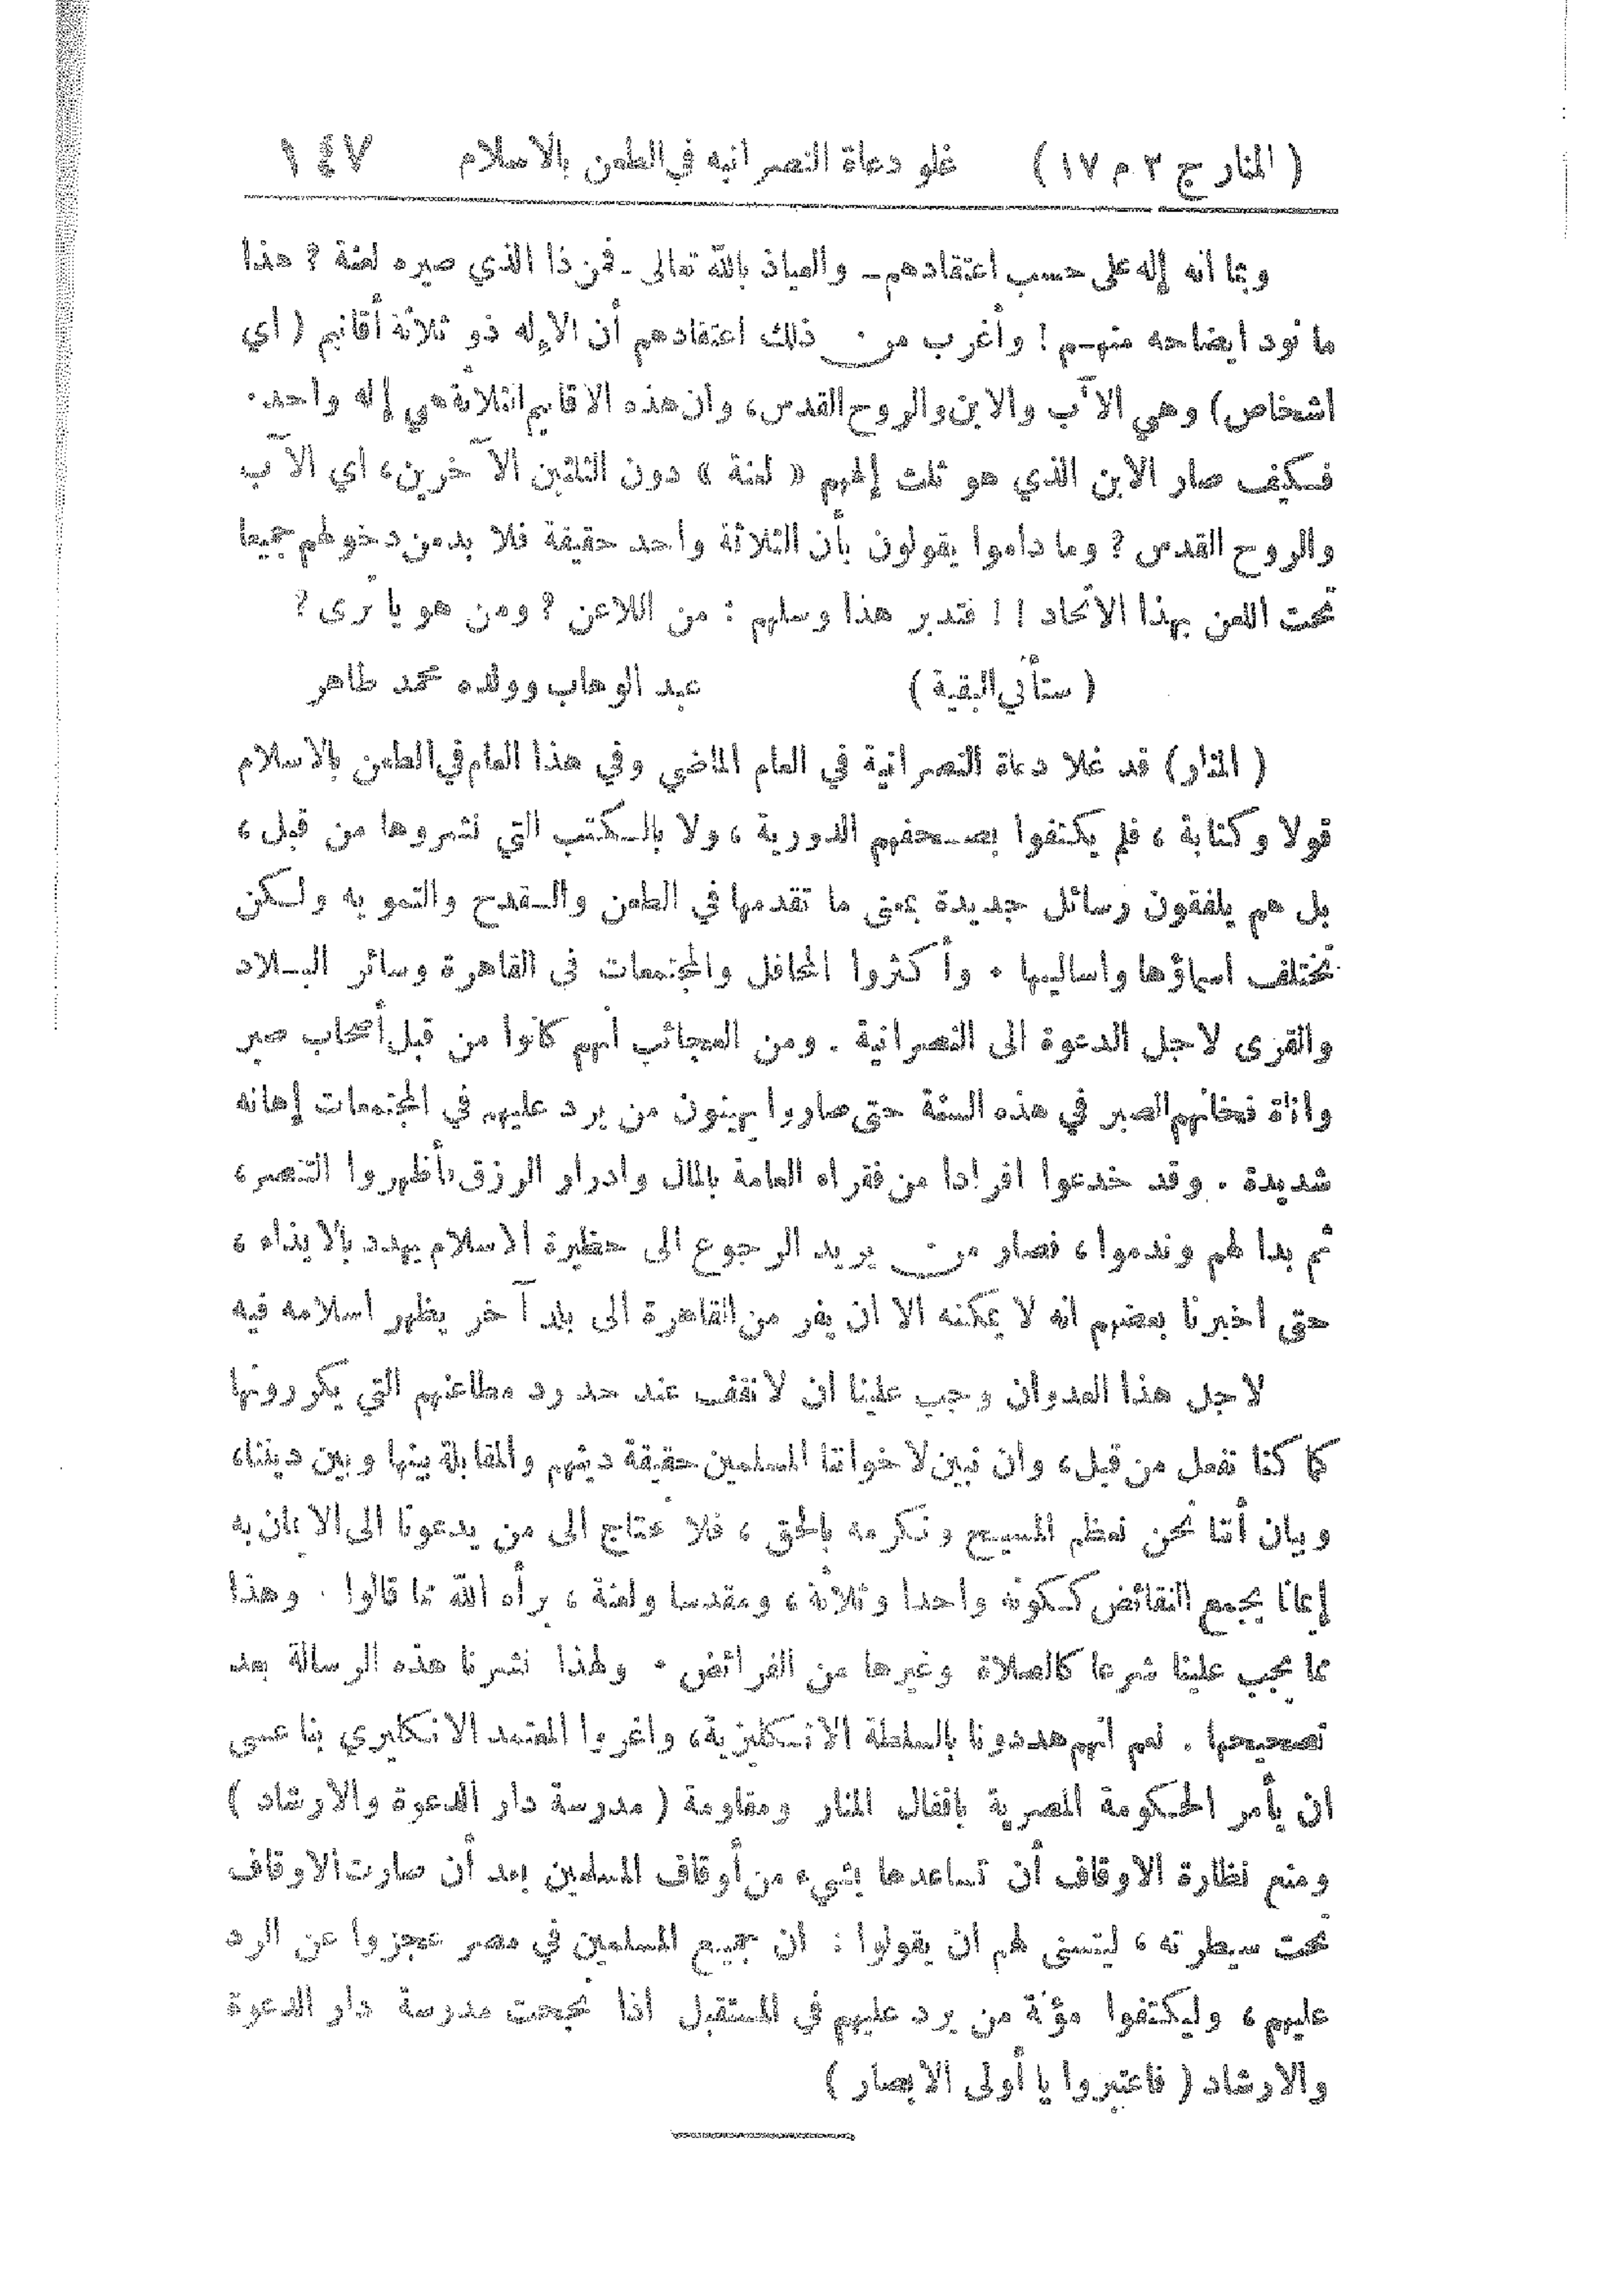 ( المنار ج ٣ م ١٧ ) غلو دعاة النصرانية في الطعن بالاسلام ١٤٧
وبما انه إله على حسب اعتقادهم ـ والعياذ بالله تعالى ـ فمن ذا الذي صيره لعنة ? هذا
ما نود ايضاحه منهم ! وأغرب من ذلك اعتقادهم أن الإله ذو ثلاثة أقانيم ( أي
اشخاص) وهي الآب والابن والروح القدس، وان هذه الاقانيم الثلاثة هي إله واحد .
فكيف صار الابن الذي هو ثلث إلههم « لعنة » دون الثلثين الآخرين، اي الآب
والروح القدس ? وما داموا يقولون بأن الثلاثة واحد حقيقة فلا بد من دخولهم جميعا
تحت اللعن بهذا الاتحاد !! فتدبر هذا وسلهم : من اللاعن ? ومن هو يا ترى ?
( ستأتي البقية ) عبد الوهاب وولده محمد طاهر
( المنار) قد غلا دعاة النصرانية في العام الماضي وفي هذا العام في الطعن بالاسلام
قولا وكتابة ، فلم يكتفوا بصحفهم الدورية ، ولا بالكتب التي نشروها من قبل ،
بل هم يلفقون رسائل جديدة بمعنى ما تقدمها في الطعن والقدح والتمويه ولكن
تختلف اسماؤها واساليبها . وأكثروا المحافل والمجتمعات في القاهرة وسائر البلاد
والقرى لاجل الدعوة الى النصرانية . ومن العجائب أنهم كانوا من قبل أصحاب صبر
واناة فخانهم الصبر في هذه السنة حتى صاروا يهينون من يرد عليهم في المجتمعات إهانه
شديدة . وقد خدعوا افرادا من فقراء العامة بالمال وادرار الرزق فأظهروا التنصر،
ثم بدا لهم وندموا ، فصار من يريد الرجوع الى حظيرة الاسلام يهدد بالايذاء ،
حتى اخبرنا بعضهم انه لا يمكنه الا ان يفر من القاهرة الى بلد آخر يظهر اسلامه فيه
لاجل هذا العدوان وجب علينا ان لا نقف عند حدود مطاعنهم التي يكررونها
كما كنا نفعل من قبل، وان نبين لاخواننا المسلمين حقيقة دينهم والمقابلة بينها وبين ديننا،
وبيان أننا نحن نعظم المسيح ونكرمه بالحق ، فلا نحتاج الى من يدعونا الى الايمان به
إيمانا يجمع النقائض ككونه واحدا وثلاثة ، ومقدسا ولعنة ، برأه الله مما قالوا . وهذا
مما يجب علينا شرعا كالصلاة وغيرها من الفرائض . ولهذا نشرنا هذه الرسالة بعد
تصحيحها . نعم انهم هددونا بالسلطة الانكليزية، واغروا المعتمد الانكليزي بنا عسى
ان يأمر الحكومة المصرية باقفال المنار ومقاومة ( مدرسة دار الدعوة والارشاد )
ومنع نظارة الاوقاف أن تساعدها بشيء من أوقاف المسلمين بعد أن صارت الاوقاف
تحت سيطرته ، ليتسنى لهم ان يقولوا : ان جميع المسلمين في مصر عجزوا عن الرد
عليهم ، وليكتفوا مؤنة من يرد عليهم في المستقبل اذا نجحت مدرسة دار الدعوة
والارشاد ( فاعتبروا يا أولى الابصار )